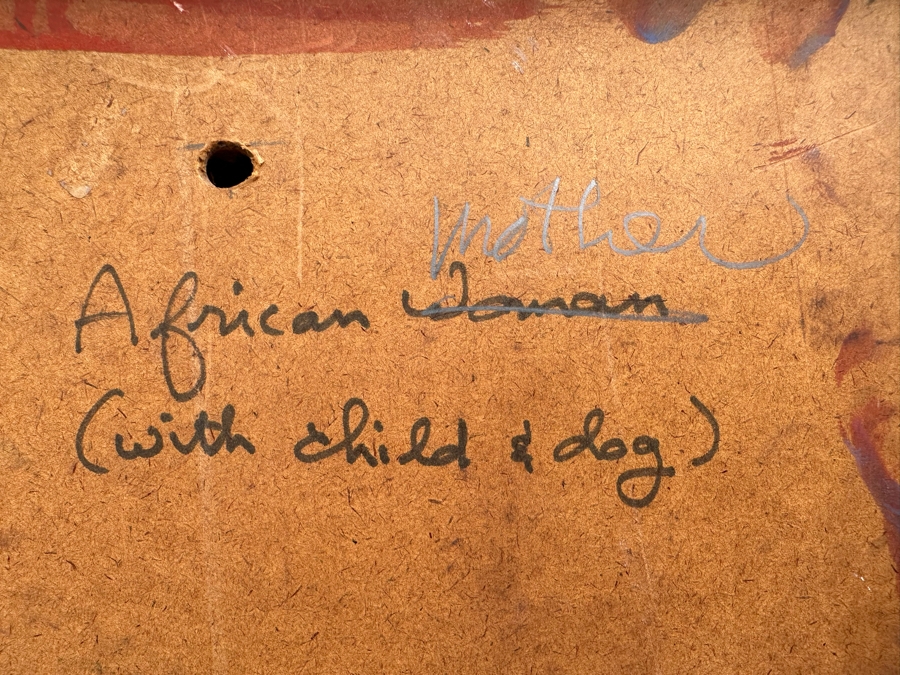 mother
African Woman
(with child & dog)